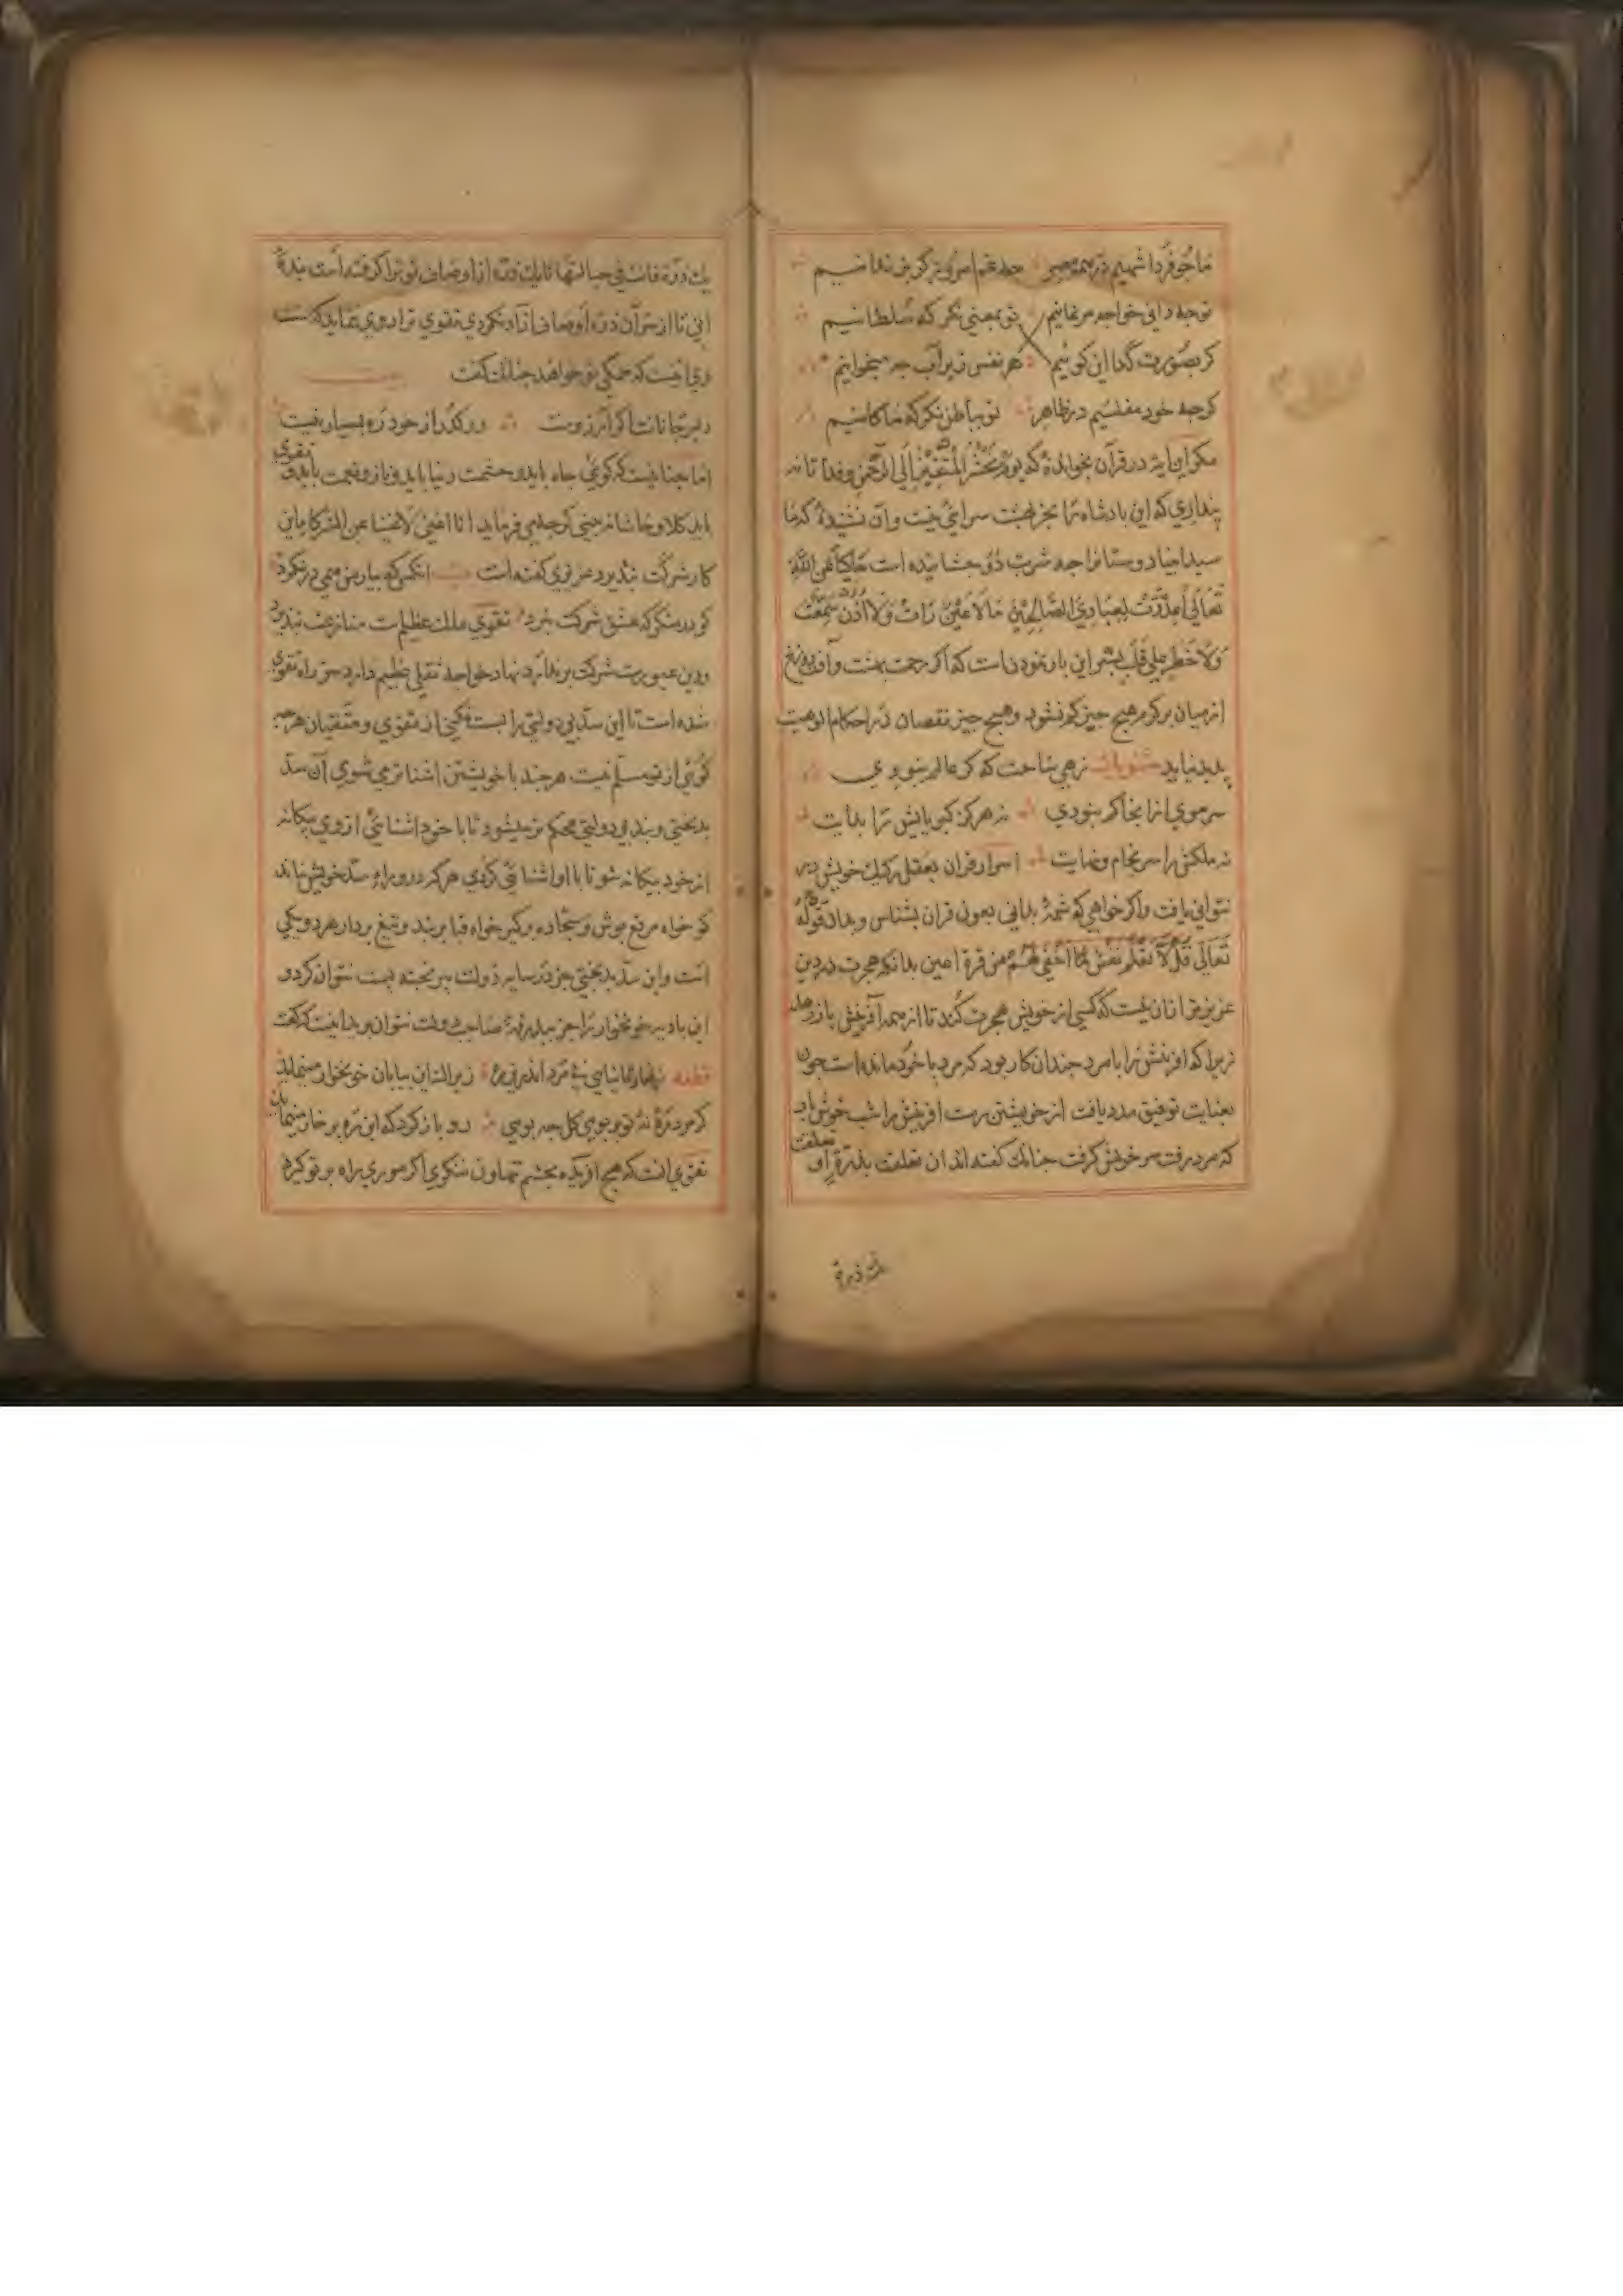 ما چو فردا شهیم در همه مصر چه غم امروز گر بزندانیم
تو چه دانی خواجه مرغانیم تو بمعنی نکر که سلطانیم
کر بصورت گدا این کوئیم هر نفس زیر آب چه میخوانیم
کرچه خود مفلسیم در ظاهر تو بباطن نکر که ما کانیم
مکر این ایه در قرآن نخواندهٔ که یوم نحشر المتقین الی الرحمن وفدا تا نه
پنداری که این بادشاه را بجز بهشت سرائی نیست وآن نشنیدهٔ که ما
سید انبیا دوستانرا چه شربت ذوق چشانیده است حاکیا عن الله
تعالی اعددت لعبادی الصالحین ما لا عین رات ولا اذن سمعت
ولا خطر علی قلب بشر این بار نمودن است که اکر بهشت وآن دوزخ
از میان برکیرم هیچ چیز کم نشود وهیچ چیز نقصان در احکام الوهیت
پدید نیاید زهی ساحت که کر عالم نبودی
سر موی ازانجا کم نبودی نه هرکز کبریایش را بدایت
نه ملکش را سرنجام ونهایت اسرار قران بعقل رکیک خویش در
نتوانی یافت واکر خواهی که شمهٔ بدانی بعون قران بشناس وبدان قوله
تعالی فلا تعلم نفس ما اخفی لهم من قرة اعین بدانکه هجرت در دین
عزیز تر ازان نیست که کسی از خویش هجرت کند تا از همه آفرینش باز رهد
زیرا که افرینش را با مرد چندان کار بود که مرد با خود مانده است چون
بعنایت توفیق مدد یافت از خویشتن برست افرینش را شب خوش باد
که مرد برفت سر خویش کرفت چنانک کفته اند ان تعلقت بذرة او تعلقت
بک ذرة
یک ذرة فانت فی حبالتها تا یک ذره از اوصاف تو ترا کرفته است بندهٔ
انی تا از سر آن ذره اوصاف ازاد نکردی تقوی ترا روی ننماید که ست
وی انیست که همکی تو خواهد چنانک کفت
دلبر جانانت اکر آرزوست ورکذر از خود ره بسیار نیست
اما چنان نیست که کوئی جاه باید وحشمت دنیا باید وناز ونعمت باید وتقوی
باید کلا وحاشا نه بینی که چه می فرماید انا اغنی الاغنیا عن الشرک با این
کار شرکت نپذیرد عزیزی کفته است انکس که بیار من همی در نکرد
کو در منکر که عشق شرکت نبرد تقوی ملک عظیم است منازعت نپذیرد
ودین غیورست شرکت بر ندارد نهاد خواجه ثقلی عظیم دارد سر راه تقوی
شده است تا این سد بی دولتی را بست نکنی از تقوی ومتقیان هرچه
کوئی از تو مسلم نیست هر چند با خویشتن اشناتر می شوی آن سد
بدبختی وبند بی دولتی محکم تر میشود تا با خود اشنائی از وی بیکانه
از خود بیکانه شو تا با او اشنائی کردی هرکه در وراء سد خویش بماند
کو خواه مرقع پوش وسجاده بر کیر خواه قبا بر بند وتیغ بردار هر دو یکی
است واین سد بدبختی جز در سایه دولت پر بخته پست نتوان کرد و
این بادیه خونخوار را جز ببدرقهٔ صاحب دولت نتوان برید انیست که کفت
قطعه تنها زیرا که این بیابان خونخوار مینماید
کر مرد رهٔ نهٔ تو بوی کل چه بویی رو باز کرد که این ره بر خار مینماید
تقوی انست که هیچ افریده بچشم تهاون ننکری اکر موری راه بر تو کیرد